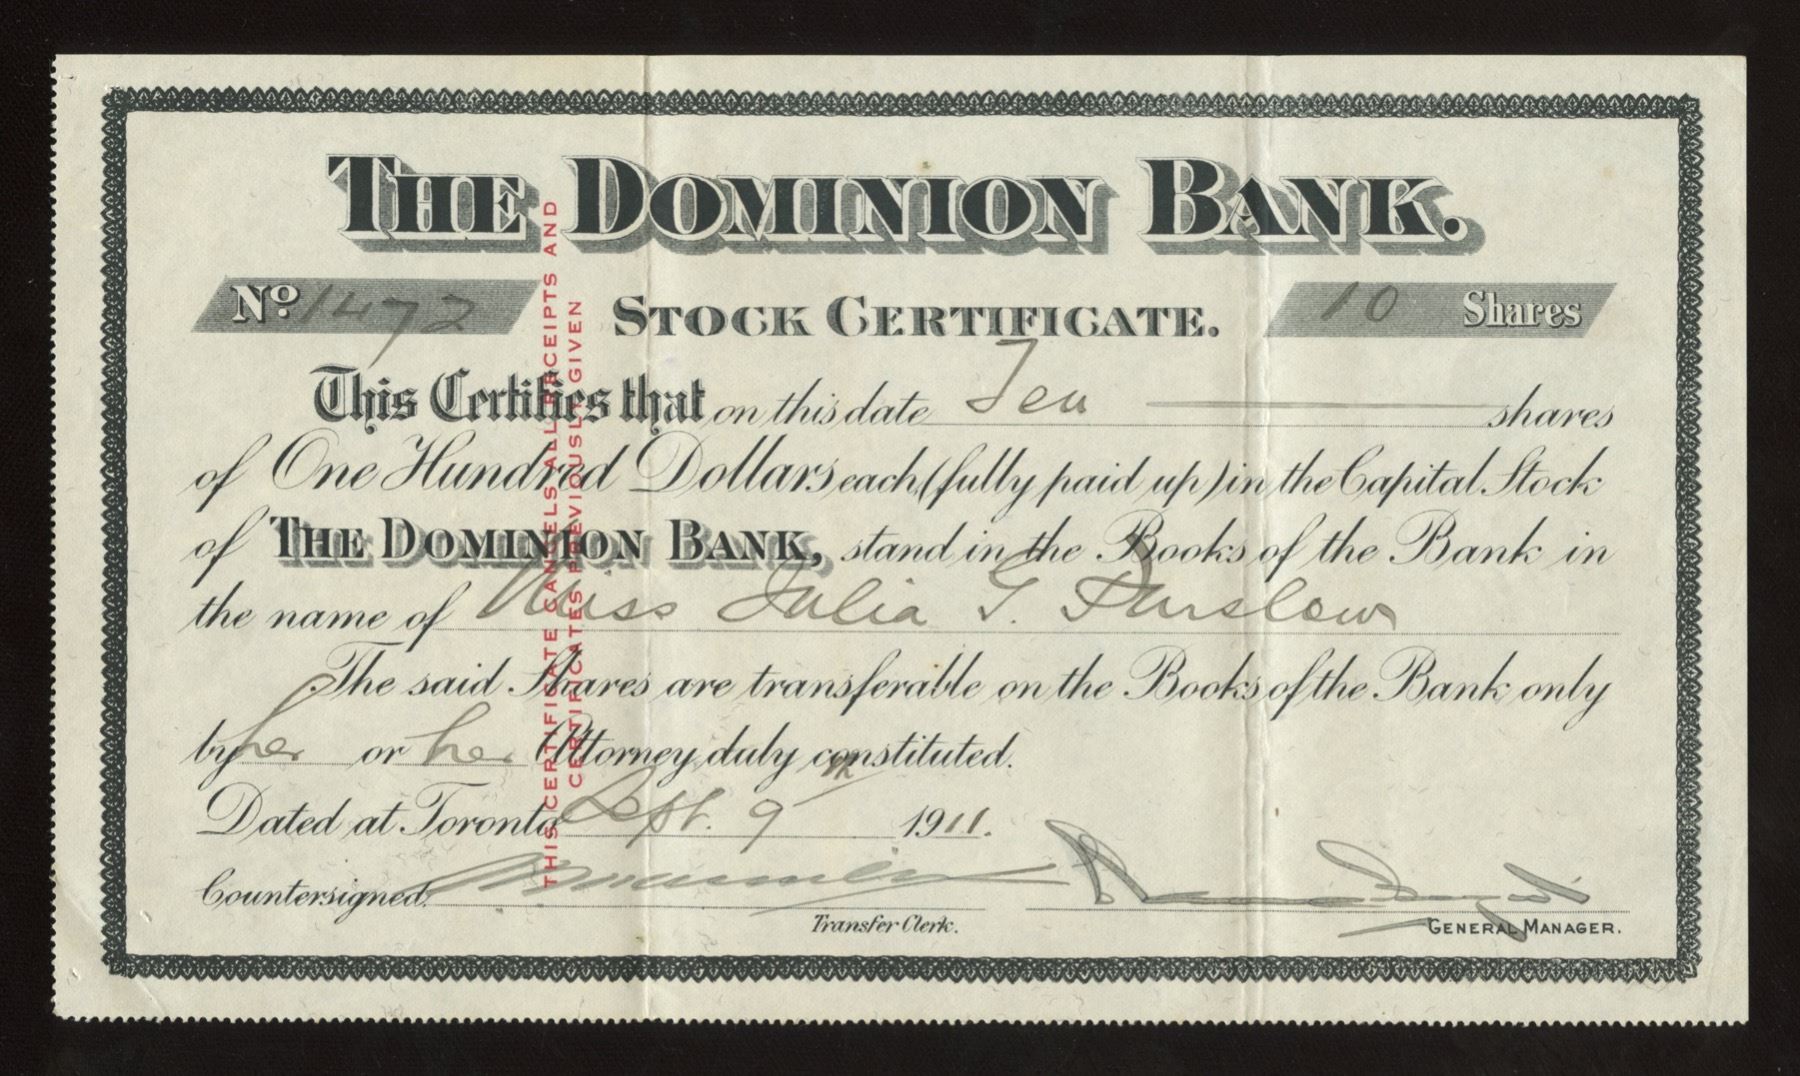 THE DOMINION BANK.
No. 1472
STOCK CERTIFICATE.
10 Shares
This Certifies that on this date Ten shares
of One Hundred Dollars each (fully paid up) in the Capital Stock
of THE DOMINION BANK, stand in the Books of the Bank in
the name of Miss Julia T. Purslow
The said Shares are transferable on the Books of the Bank only
by her or her Attorney duly constituted.
Dated at Toronto Sept. 9th 1911.
Countersigned
Transfer Clerk.
GENERAL MANAGER.
THIS CERTIFICATE CANCELS ALL RECEIPTS AND
CERTIFICATES PREVIOUSLY GIVEN